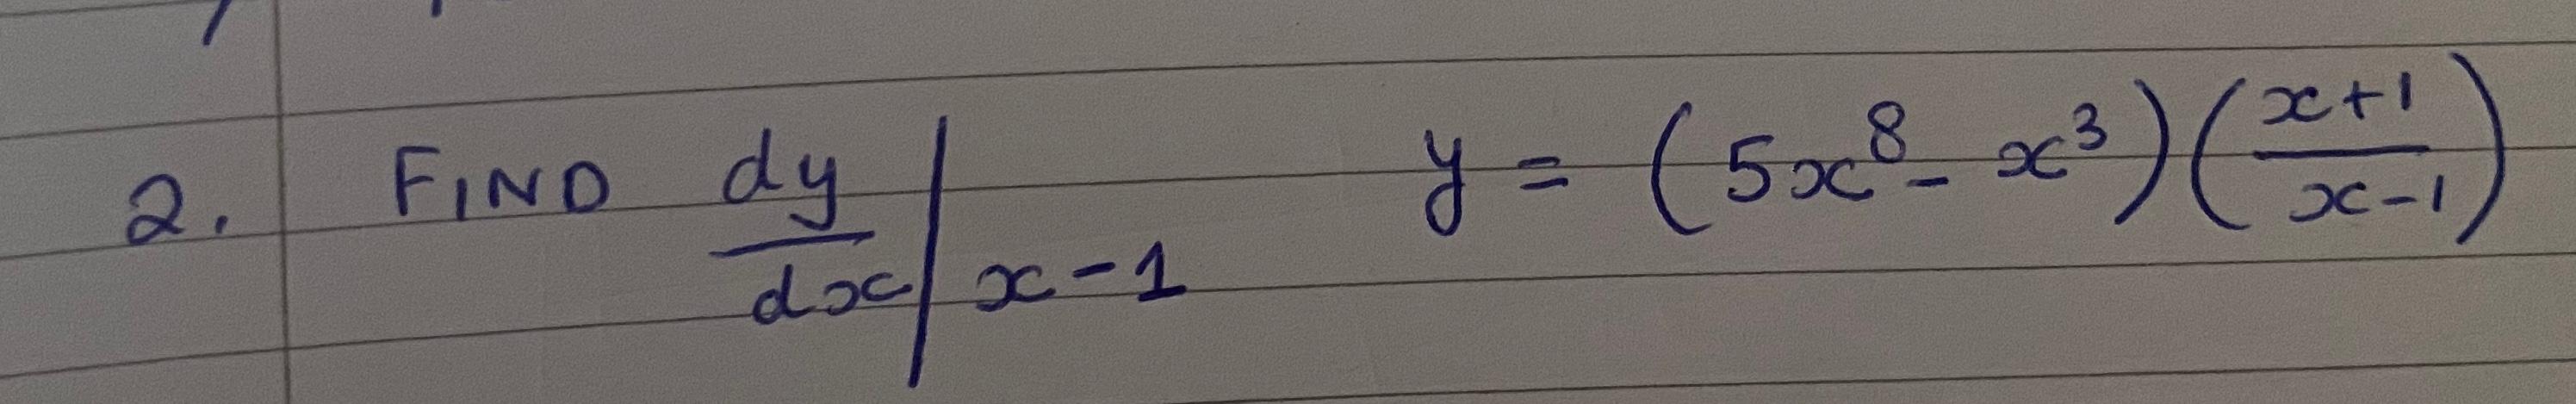 2. FIND dy/dx | x-1 y = (5x⁸ - x³)((x+1)/(x-1))